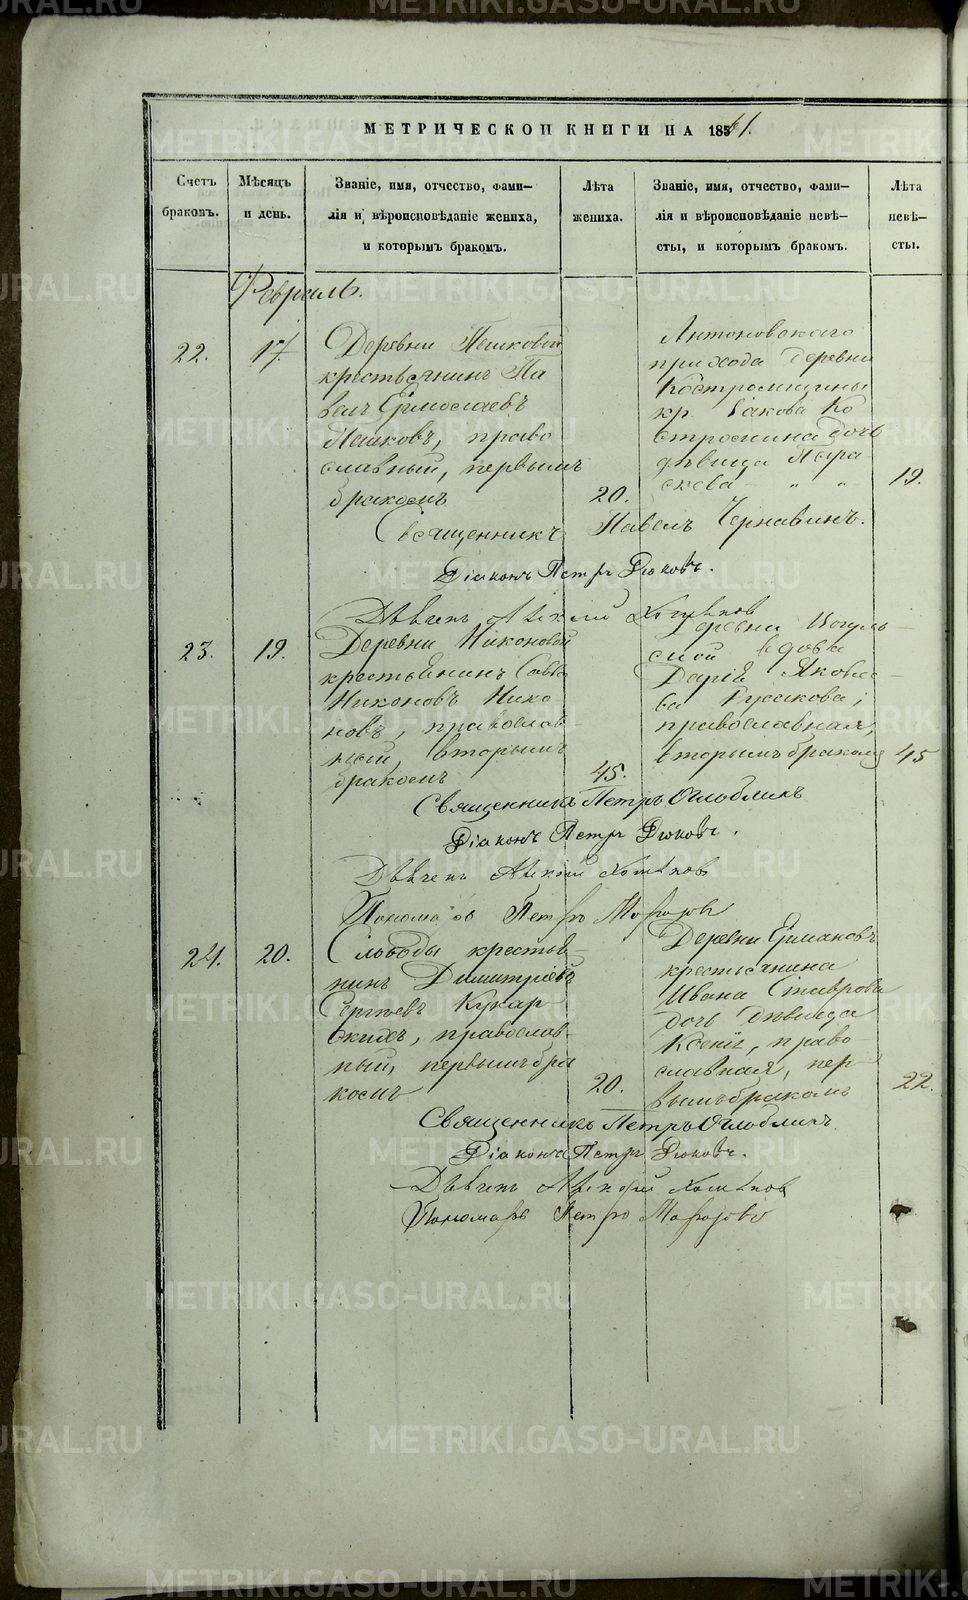 МЕТРИЧЕСКОЙ КНИГИ НА 1861.
Счетъ
браковъ.
Мѣсяцъ
и день.
Званіе, имя, отчество, фами-
лія и вѣроисповѣданіе жениха,
и которымъ бракомъ.
Лѣта
жениха.
Званіе, имя, отчество, фами-
лія и вѣроисповѣданіе невѣ-
сты, и которымъ бракомъ.
Лѣта
невѣ-
сты.
Февраль.
22.
17
Деревни Пешковой
крестьянинъ Па
велъ Ермолаевъ
Пешковъ, право
славный, первымъ
бракомъ
20.
Антоновскаго
прихода деревни
Костромицины
кр. Іакова Ко
стромина дочь
дѣвица Пара
скева " "
19.
Священникъ Павелъ Чернавинъ.
Діаконъ Петръ Дюковъ.
23.
19.
Деревни Никоновой
крестьянинъ Савва
Никоновъ Нико
новъ, православ-
ный, вторымъ
бракомъ
45.
Деревни Вогуль-
ской вдова
Дарія Яковле-
ва Русакова,
православная,
вторымъ бракомъ
45
Священникъ Петръ Оглоблинъ
Діаконъ Петръ Дюковъ.
Пономарь Петръ Морозовъ
24.
20.
Слободы крестья-
нинъ Димитрій
Сергѣевъ Кукар
скихъ, православ-
ный, первымъ бра
комъ
20.
Деревни Ермаковъ
крестьянина
Ивана Ставрова
дочь дѣвица
Ксенія, право-
славная, пер-
вымъ бракомъ
22.
Священникъ Петръ Оглоблинъ.
Діаконъ Петръ Дюковъ.
Пономарь Петръ Морозовъ
METRIKI.GASO-URAL.RU